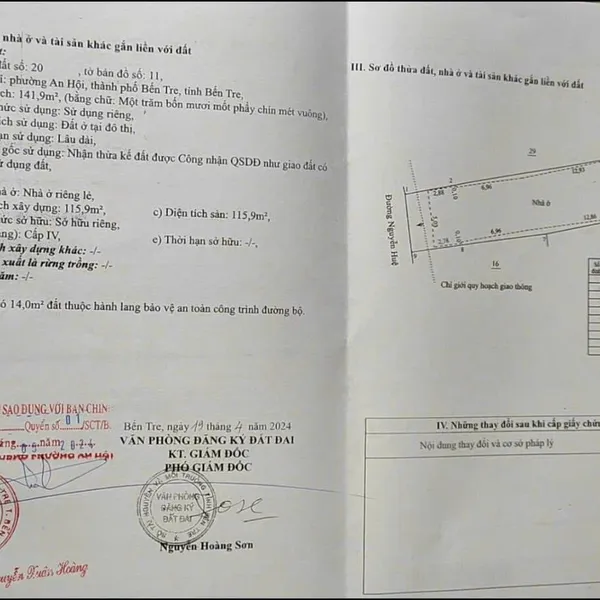 nhà ở và tài sản khác gắn liền với đất
t:
đất số: 20 , tờ bản đồ số: 11,
i: phường An Hội, thành phố Bến Tre, tỉnh Bến Tre,
ích: 141,9m², (bằng chữ: Một trăm bốn mươi mốt phẩy chín mét vuông),
hức sử dụng: Sử dụng riêng,
ích sử dụng: Đất ở tại đô thị,
ạn sử dụng: Lâu dài,
gốc sử dụng: Nhận thừa kế đất được Công nhận QSDĐ như giao đất có
ử dụng đất,
hà ở: Nhà ở riêng lẻ,
ích xây dựng: 115,9m², c) Diện tích sàn: 115,9m²,
ức sở hữu: Sở hữu riêng,
ạng): Cấp IV, e) Thời hạn sở hữu: -/-,
h xây dựng khác: -/-
xuất là rừng trồng: -/-
ăm: -/-
ó 14,0m² đất thuộc hành lang bảo vệ an toàn công trình đường bộ.
SAO ĐÚNG VỚI BẢN CHÍN
Quyển số 01 /SCT/B.
Bến Tre, ngày 19 tháng 4 năm 2024
VĂN PHÒNG ĐĂNG KÝ ĐẤT ĐAI
KT. GIÁM ĐỐC
PHÓ GIÁM ĐỐC
PHƯỜNG AN HỘI
VĂN PHÒNG
ĐĂNG KÝ
ĐẤT ĐAI
Nguyễn Hoàng Sơn
guyễn Xuân Hoàng
III. Sơ đồ thửa đất, nhà ở và tài sản khác gắn liền với đất
29
1
2
2,88
0,10
6,96
12,93
Đường Nguyễn Huệ
Nhà ở
9
2,78
0,10
8
6,96
7
12,86
16
Chỉ giới quy hoạch giao thông
IV. Những thay đổi sau khi cấp giấy chứn
Nội dung thay đổi và cơ sở pháp lý